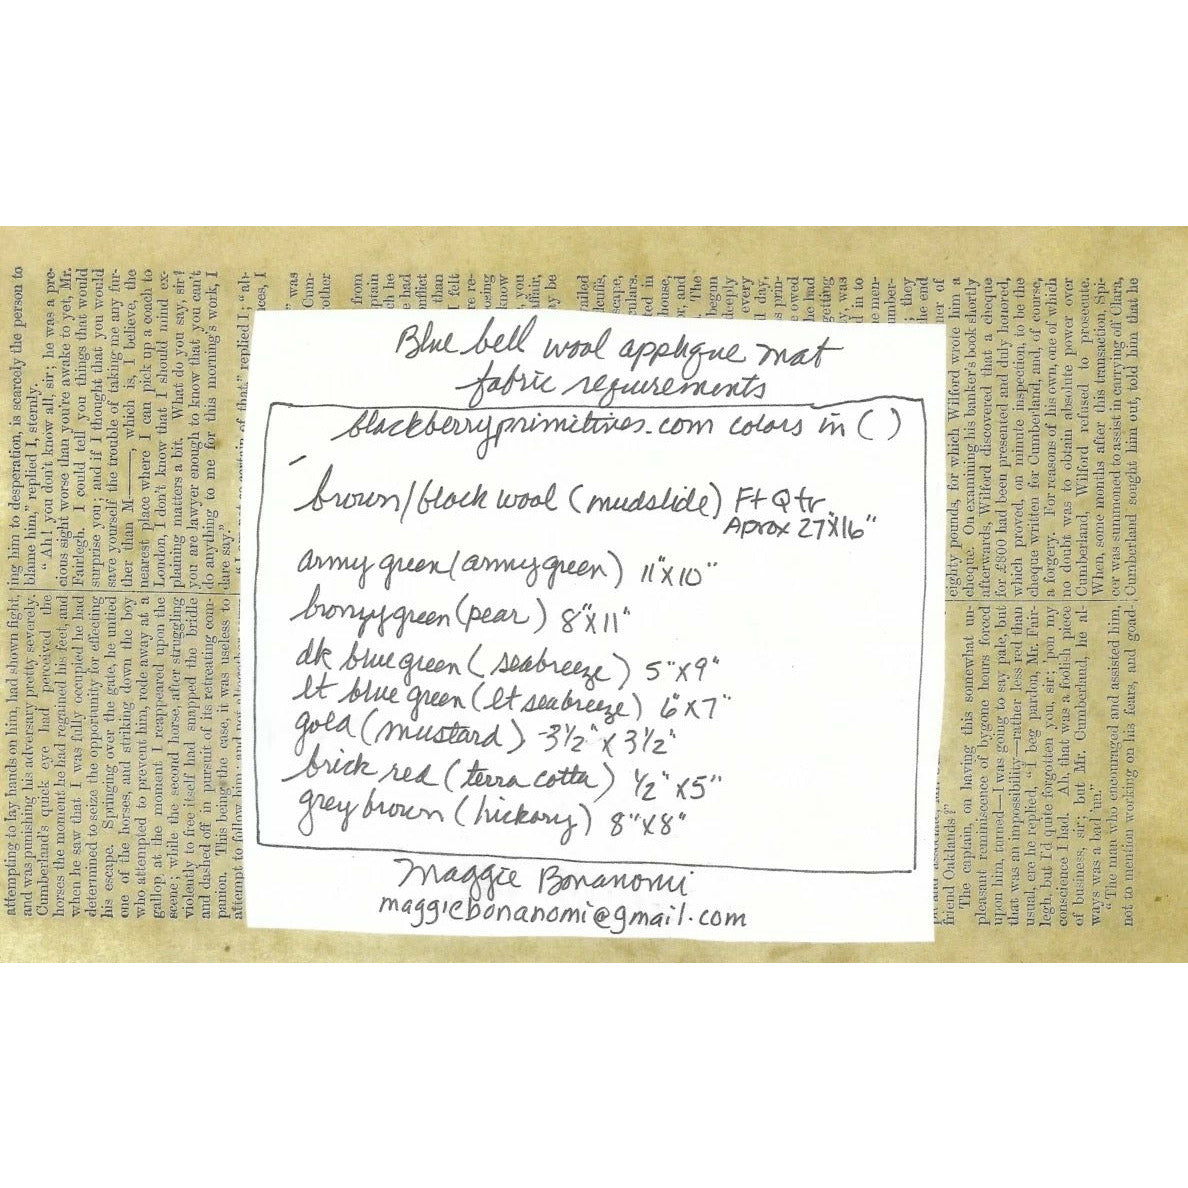 Blue bell wool applique mat
fabric requirements
blackberryprimitives.com colors in ( )
brown/black wool (mudslide) Ft Qtr
Aprox 27"X16"
army green (army green) 11"X10"
bronzy green (pear) 8"X11"
dk blue green (seabreeze) 5"X9"
lt blue green (lt seabreeze) 6"X7"
gold (mustard) -3½" X 3½"
brick red (terra cotta) ½"X5"
grey brown (hickory) 8"X8"
Maggie Bonanomi
maggiebonanomi@gmail.com
attempting to lay hands on him, had shown fight,
and was punishing his adversary pretty severely.
Cumberland's quick eye had perceived the
horses the moment he had regained his feet, and
when he saw that I was fully occupied he had
determined to seize the opportunity for effecting
his escape. Springing over the gate, he untied
one of the horses, and striking down the boy
who attempted to prevent him, rode away at a
gallop, at the moment I reappeared upon the
scene; while the second horse, after struggling
violently to free itself had snapped the bridle
and dashed off in pursuit of its retreating com-
panion. This being the case, it was useless to
attempt to follow him
ing him to desperation, is scarcely the person to
blame him," replied I, sternly.
"Ah! you don't know all, sir; he was a pre-
cious sight worse than you're awake to yet, Mr.
Fairlegh. I could tell you things that would
surprise you; and if I thought that you would
save yourself the trouble of taking me any fur-
ther than M——, which is, I believe, the
nearest place where I can pick up a coach to
London, I don't know that I should mind ex-
plaining matters a bit. What do you say, sir?
you are lawyer enough to know that you can't
do anything to me for this morning's work, I
dare say."
of that," replied I; "al-
friend Oaklands?"
The captain, on having this somewhat un-
pleasant reminiscence of bygone hours forced
upon him, turned—I was going to say pale, but
that was an impossibility—rather less red than
usual, ere he replied, "I beg pardon, Mr. Fair-
legh, but I'd quite forgotten you, sir; 'pon my
conscience I had. Ah, that was a foolish piece
of business, sir; but Mr. Cumberland, he al-
ways was a bad 'un."
"The man who encouraged and assisted him,
not to mention working on his fears, and goad-
eighty pounds, for which Wilford wrote him a
cheque. On examining his banker's book shortly
afterwards, Wilford discovered that a cheque
for £800 had been presented and duly honored,
which proved, on minute inspection, to be the
cheque written for Cumberland, and, of course,
a forgery. For reasons of his own, one of which
no doubt was to obtain absolute power over
Cumberland, Wilford refused to prosecute.
When, some months after this transaction, Spi-
cer was summoned to assist in carrying off Clara,
Cumberland sought him out, told him that he